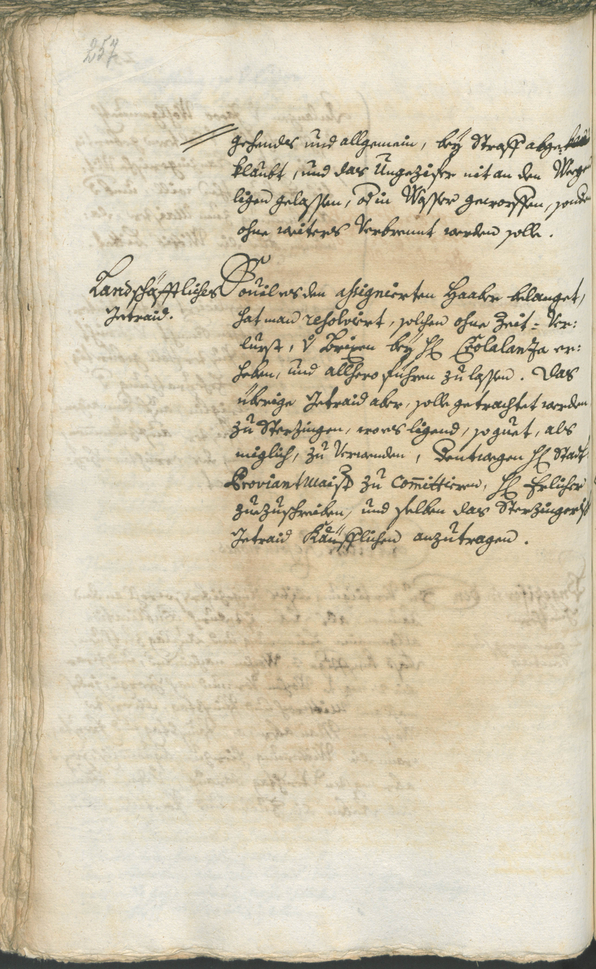 257
gehendes und allgemein, bey Straff abge
klaubt, und das Ungezifer nit an den Weeg
ligen gelassen, od in Wasser geworffen, sonder
ohne weiters Verbrennt werden solle.
Landschäfftliches
Getraid.
Souil es den assignierten Haaber belanget,
hat man resolviert, solchen ohne Zeit-Ver-
lurst, Brixen bey H: er-
heben, und allhero führen zu lassen. Das
übrige Getraid aber, solle getrachtet werden
zu Sterzingen, wo es ligend, so guet, als
möglich, zu Verwenden, Dentwegen H: Statt
Proviantmaistr zu Committieren, H:
zuezuschreiben, und selben das Sterzingeris:
Getraid Käufflichen anzutragen.